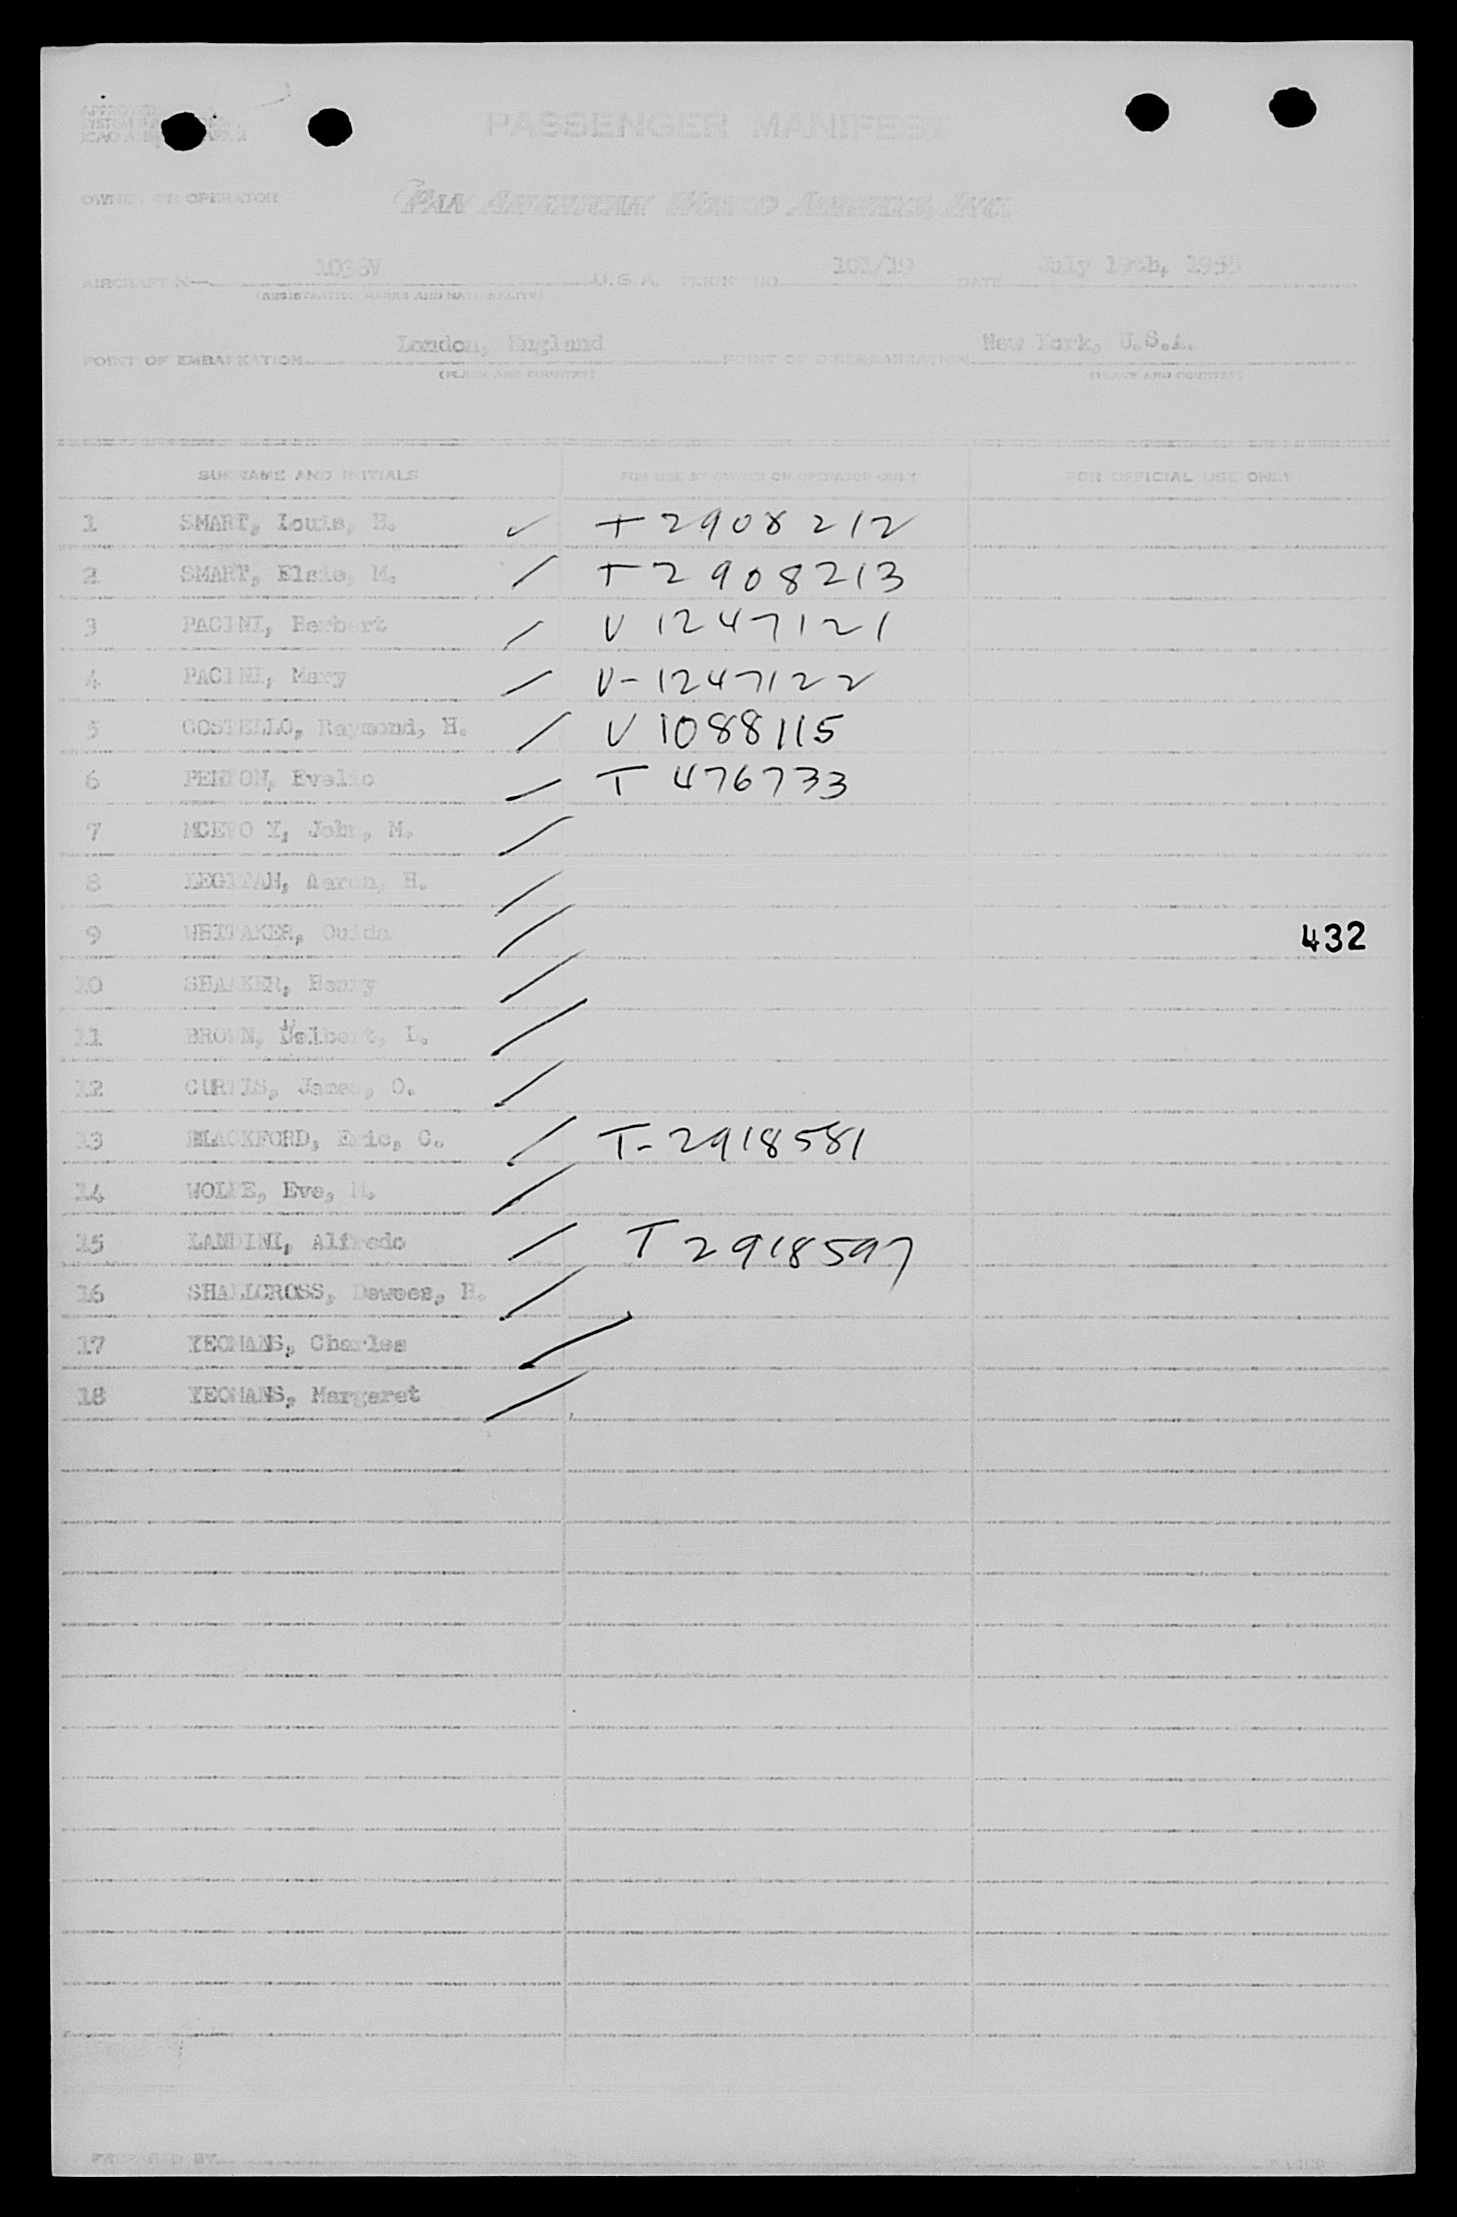 PASSENGER MANIFEST
OWNER OR OPERATOR PAN AMERICAN WORLD AIRWAYS, INC.
AIRCRAFT N— U.S.A. 101/19 DATE July 19th, 1955
(REGISTRATION MARKS AND NATIONALITY)
POINT OF EMBARKATION London, England POINT OF DISEMBARKATION New York, U.S.A.
(PLACE AND COUNTRY) (PLACE AND COUNTRY)
SURNAME AND INITIALS FOR USE BY OWNER OR OPERATOR ONLY FOR OFFICIAL USE ONLY
1 SMART, Louis, H. ✓ T 2908212
2 SMART, Elsie, M. / T 2908213
3 PACINI, Herbert / V 1247121
4 PACINI, Mary / V-1247122
5 COSTELLO, Raymond, H. / V 1088115
6 Evelio / T 476733
7 MCEVO Y, John, M. /
8 Aaron, H. /
9 WHITAKER, Ouida / 432
10 Henry /
11 BROWN, L. /
12 CURTIS, James, O. /
13 BLACKFORD, Eric, C. / T-2918581
14 WOLFE, Eve, M. /
15 LANDINI, Alfredo / T 2918597
16 SHALLCROSS, Dewees, H. /
17 YEOMANS, Charles /
18 YEOMANS, Margaret /
PREPARED BY